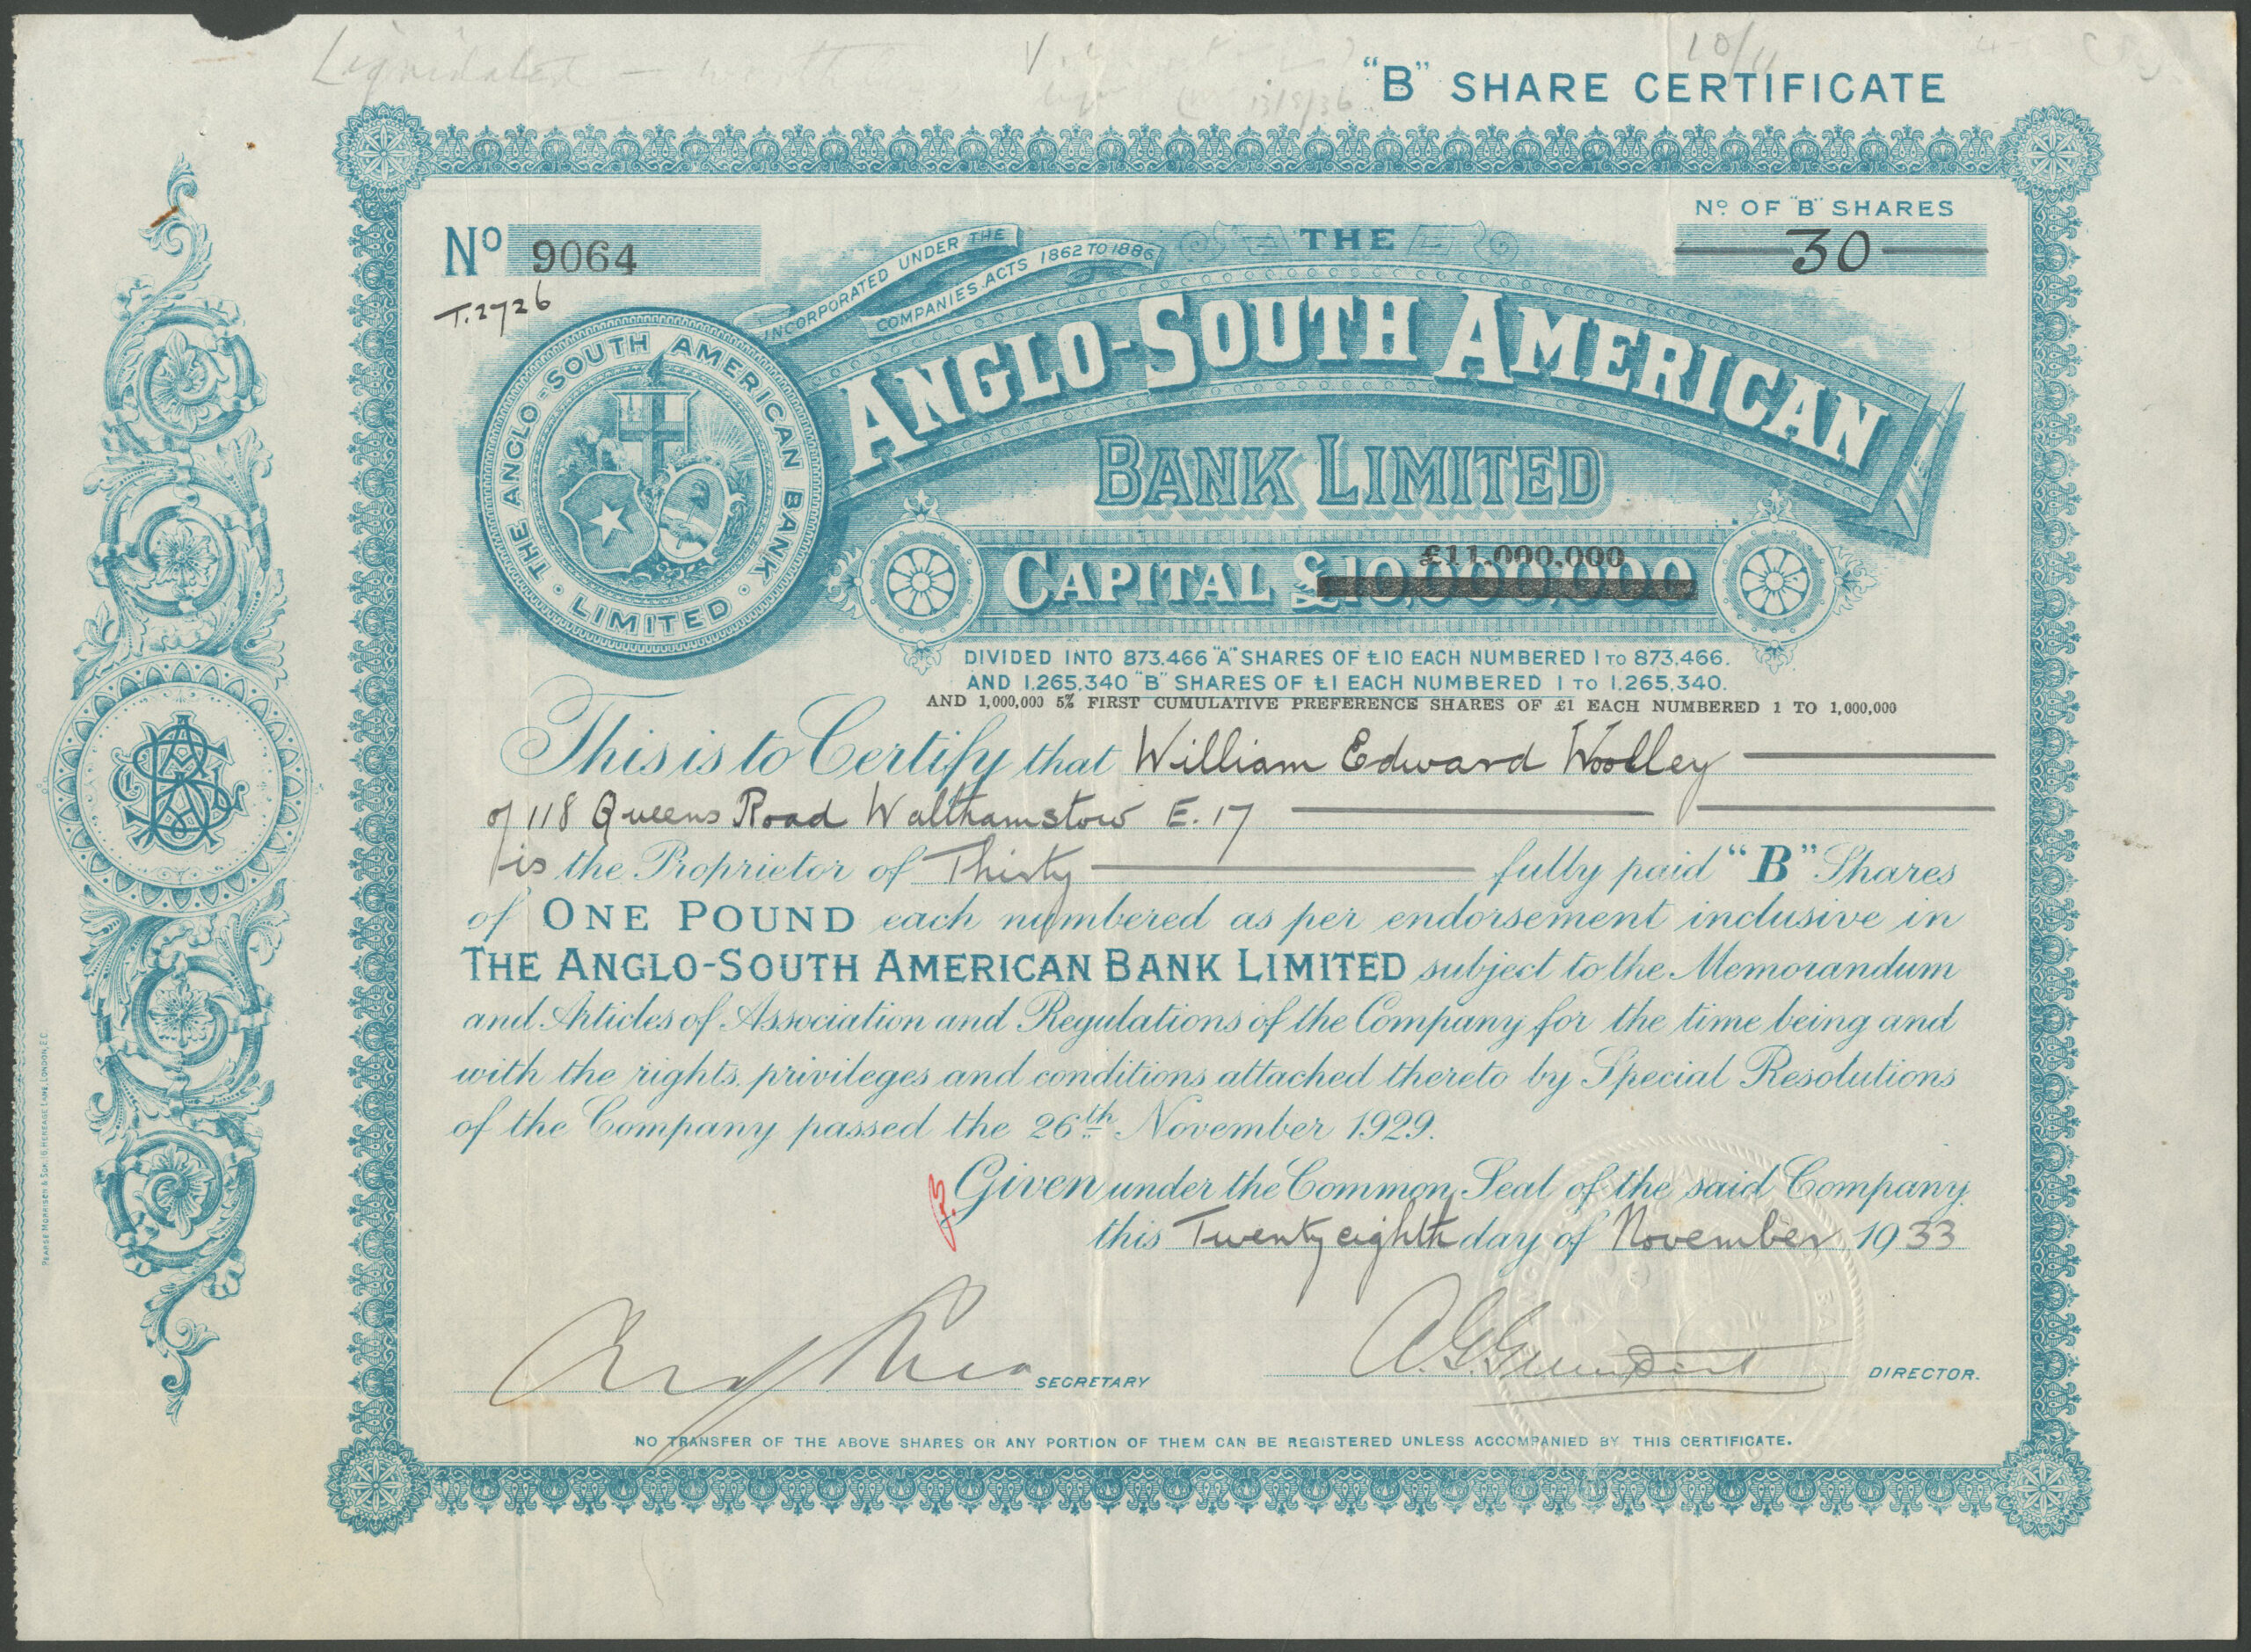 Liquidated
13/8/36
10/11
"B" SHARE CERTIFICATE
Nº 9064
T.2726
Nº OF "B" SHARES
30
INCORPORATED UNDER THE
COMPANIES ACTS 1862 TO 1886
THE
ANGLO-SOUTH AMERICAN
BANK LIMITED
THE ANGLO-SOUTH AMERICAN BANK LIMITED
£11,000,000
CAPITAL £10,000,000
DIVIDED INTO 873,466 "A" SHARES OF £10 EACH NUMBERED 1 TO 873,466.
AND 1,265,340 "B" SHARES OF £1 EACH NUMBERED 1 TO 1,265,340.
AND 1,000,000 5% FIRST CUMULATIVE PREFERENCE SHARES OF £1 EACH NUMBERED 1 TO 1,000,000
This is to Certify that William Edward Woolley
of 118 Queens Road Walthamstow E.17
is the Proprietor of Thirty fully paid "B" Shares
of ONE POUND each numbered as per endorsement inclusive in
THE ANGLO-SOUTH AMERICAN BANK LIMITED subject to the Memorandum
and Articles of Association and Regulations of the Company for the time being and
with the rights, privileges and conditions attached thereto by Special Resolutions
of the Company passed the 26th November 1929.
Given under the Common Seal of the said Company
this Twenty eighth day of November 1933
SECRETARY
DIRECTOR.
NO TRANSFER OF THE ABOVE SHARES OR ANY PORTION OF THEM CAN BE REGISTERED UNLESS ACCOMPANIED BY THIS CERTIFICATE.
PEARSE MORRISON & SON, 16, HENEAGE LANE, LONDON, E.C.